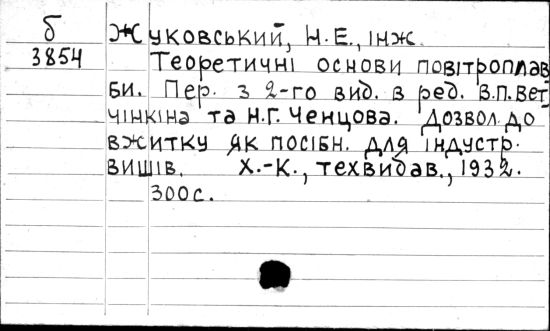 б Жуковський, Н.Е., інж.
3854 Теоретичні основи повітроплав
би. Пер. з 2-го вид. в ред. В.П.Вет-
чінкіна та Н.Г. Ченцова. Дозвол. до
вжитку як посібн. для індустр.
вишів. Х.-К., техвидав., 1932.
300с.